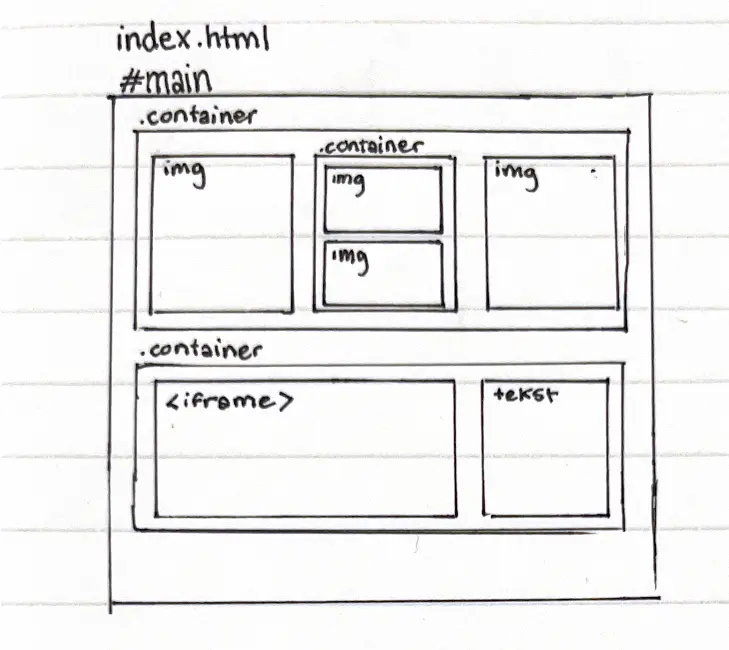 index.html
#main
.container
img
.container
img
img
img
.container
<iframe>
tekst